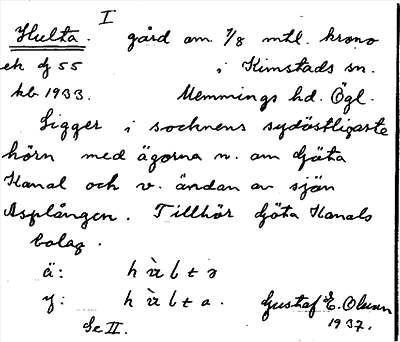 I
Hulta. gård om 7/8 mtl. krono
ek bf 55 i Kimstads sn.
kb 1933. Memmings hd. Ögl.
Ligger i socknens sydöstligaste
hörn med ägorna n. om Göta
Kanal och v. ändan av sjön
Asplången. Tillhör Göta Kanals
bolag.
ä: h
y: h
Gustaf E. Olsson
Se II. 1937.